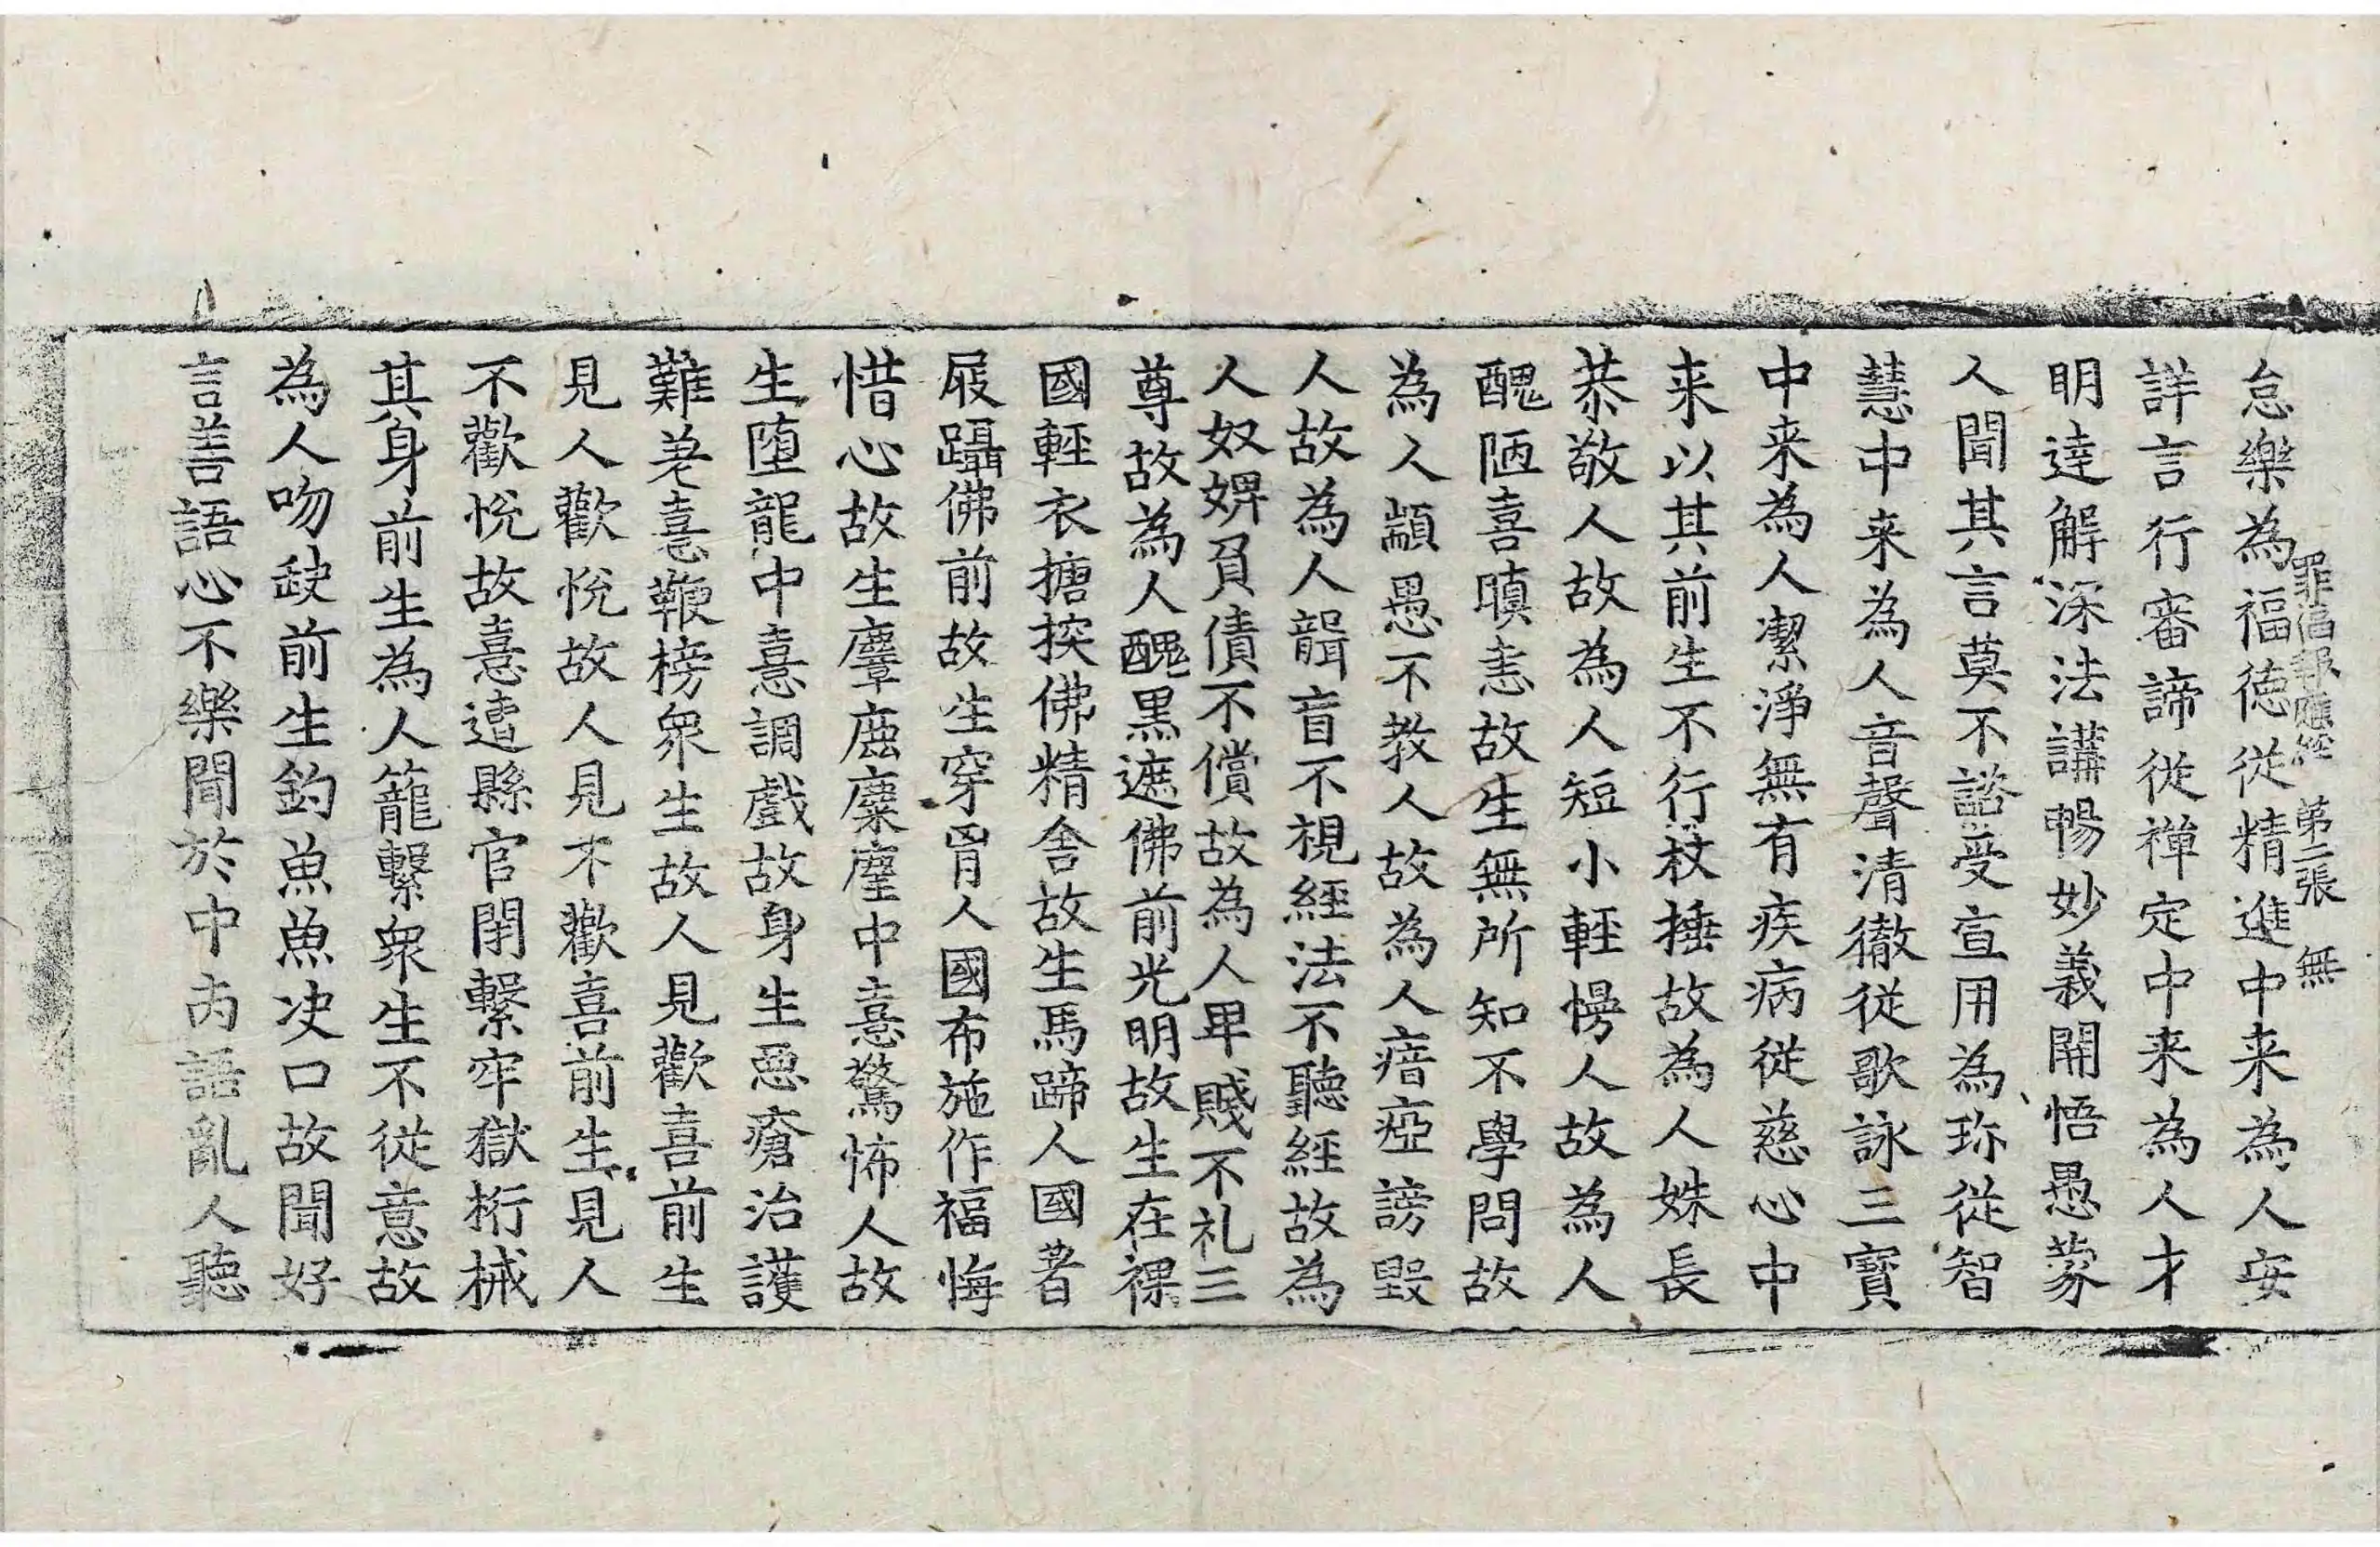 罪福報應経 第二張 無
怠樂為福徳從精進中来為人安
詳言行審諦從禅定中来為人才
明達解深法講暢妙義開悟愚蒙
人聞其言莫不諮受宣用為珎從智
慧中来為人音聲清徹從歌詠三寳
中来為人潔淨無有疾病從慈心中
来以其前生不行杖捶故為人姝長
恭敬人故為人短小輕慢人故為人
醜陋喜瞋恚故生無所知不學問故
為人顓愚不教人故為人瘖瘂謗毀
人故為人聾盲不視經法不聽經故為
人奴婢負債不償故為人卑賤不礼三
尊故為人醜黒遮佛前光明故生在裸
國輕衣搪揬佛精舍故生馬蹄人國著
屐躡佛前故生穿胷人國布施作福悔
惜心故生麞鹿麋麈中憙驚怖人故
生墮龍中憙調戲故身生惡瘡治護
難差憙鞭榜衆生故人見歡喜前生
見人歡悅故人見不歡喜前生見人
不歡悅故憙遭縣官閉繫牢獄桁械
其身前生為人籠繫衆生不從意故
為人吻缺前生釣魚魚决口故聞好
言善語心不樂聞於中𠕂語亂人聽